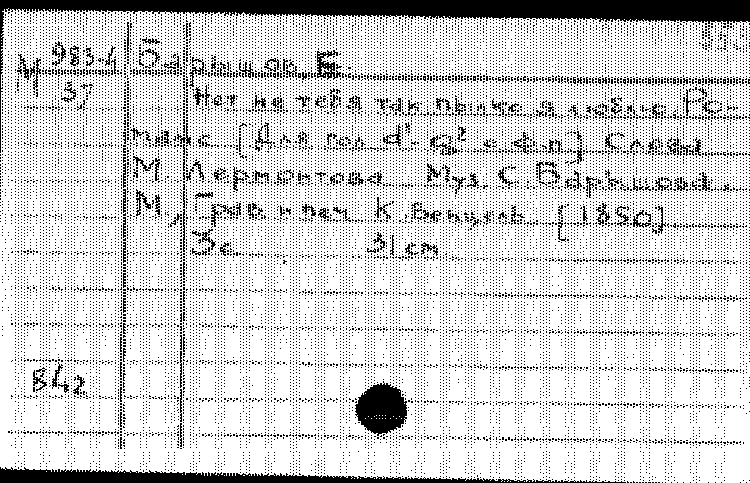 М 983-4 Барышов, Е.
37 Нет не тебя так пылко я люблю. Ро-
манс [Для гол. d¹-g² с ф-п] Слова
М. Лермонтова Муз. С. Барышова.
М., Грав. и печ. К. Венцель [1880]
3 с. 31 см
842